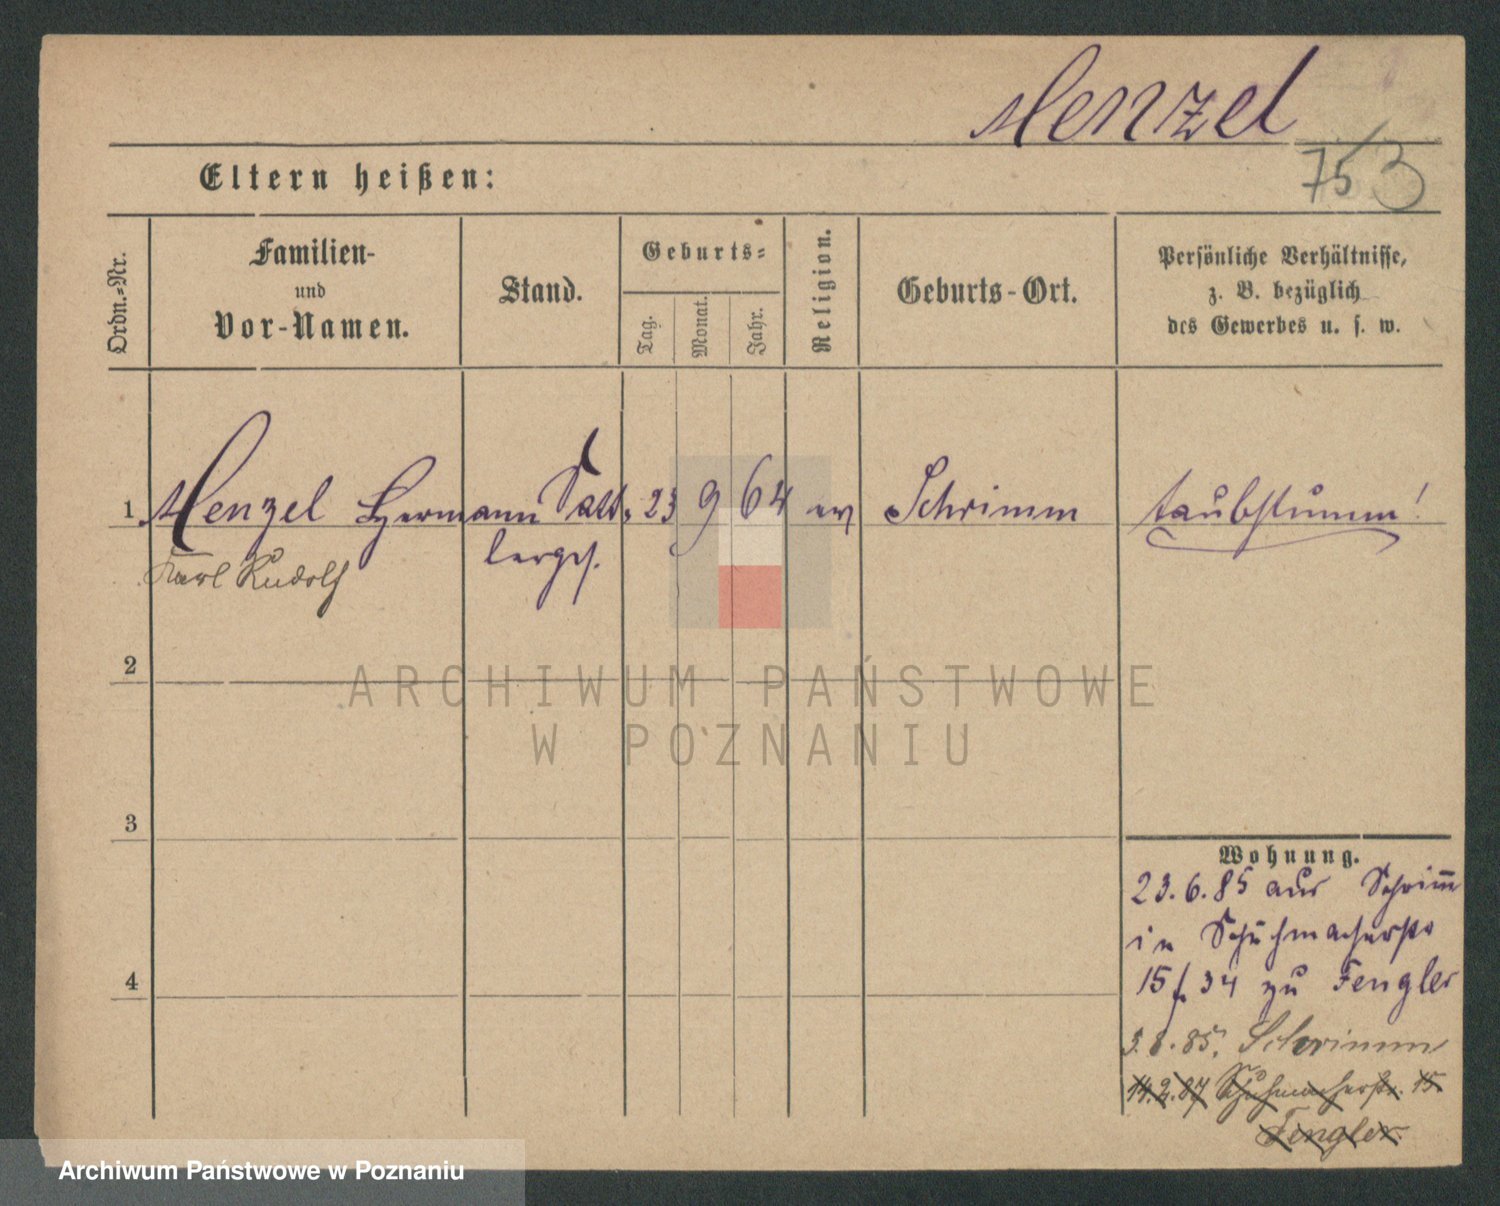 Menzel
753
Eltern heißen:
Ordn.-Nr.
Familien-
und
Vor-Namen.
Stand.
Geburts-
Tag.
Monat.
Jahr.
Religion.
Geburts-Ort.
Persönliche Verhältnisse,
z. B. bezüglich
des Gewerbes u. s. w.
1 Menzel Hermann Satt- 23 9 64 ev Schrimm taubstumm!
Karl Rudolf lerges.
2
ARCHIWUM PAŃSTWOWE
W POZNANIU
3
Wohnung.
23.6.85 aus Schrimm
in Schuhmacherstr
15 f. 34 zu Fengler
4
3.8.85. Schrimm
14.2.87 Schuhmacherstr. 15.
Fengler
Archiwum Państwowe w Poznaniu